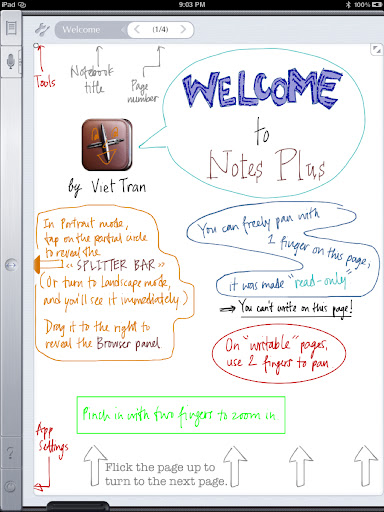 iPad
9:03 PM
100%
Welcome
(1/4)
Tools
Notebook
title
Page
number
WELCOME
to
Notes Plus
By Viet Tran
In Portrait mode,
tap on the partial circle
to reveal the
"SPLITTER BAR"
(Or turn to landscape mode,
and you'll see it immediately)
Drag it to the right to
reveal the Browser panel
You can freely pan with
1 finger on this page,
it was made "read-only"
⇒ You can't write on this page!
On "writable" pages,
use 2 fingers to pan
Pinch in with two fingers to zoom in
App
settings
Flick the page up to
turn to the next page.